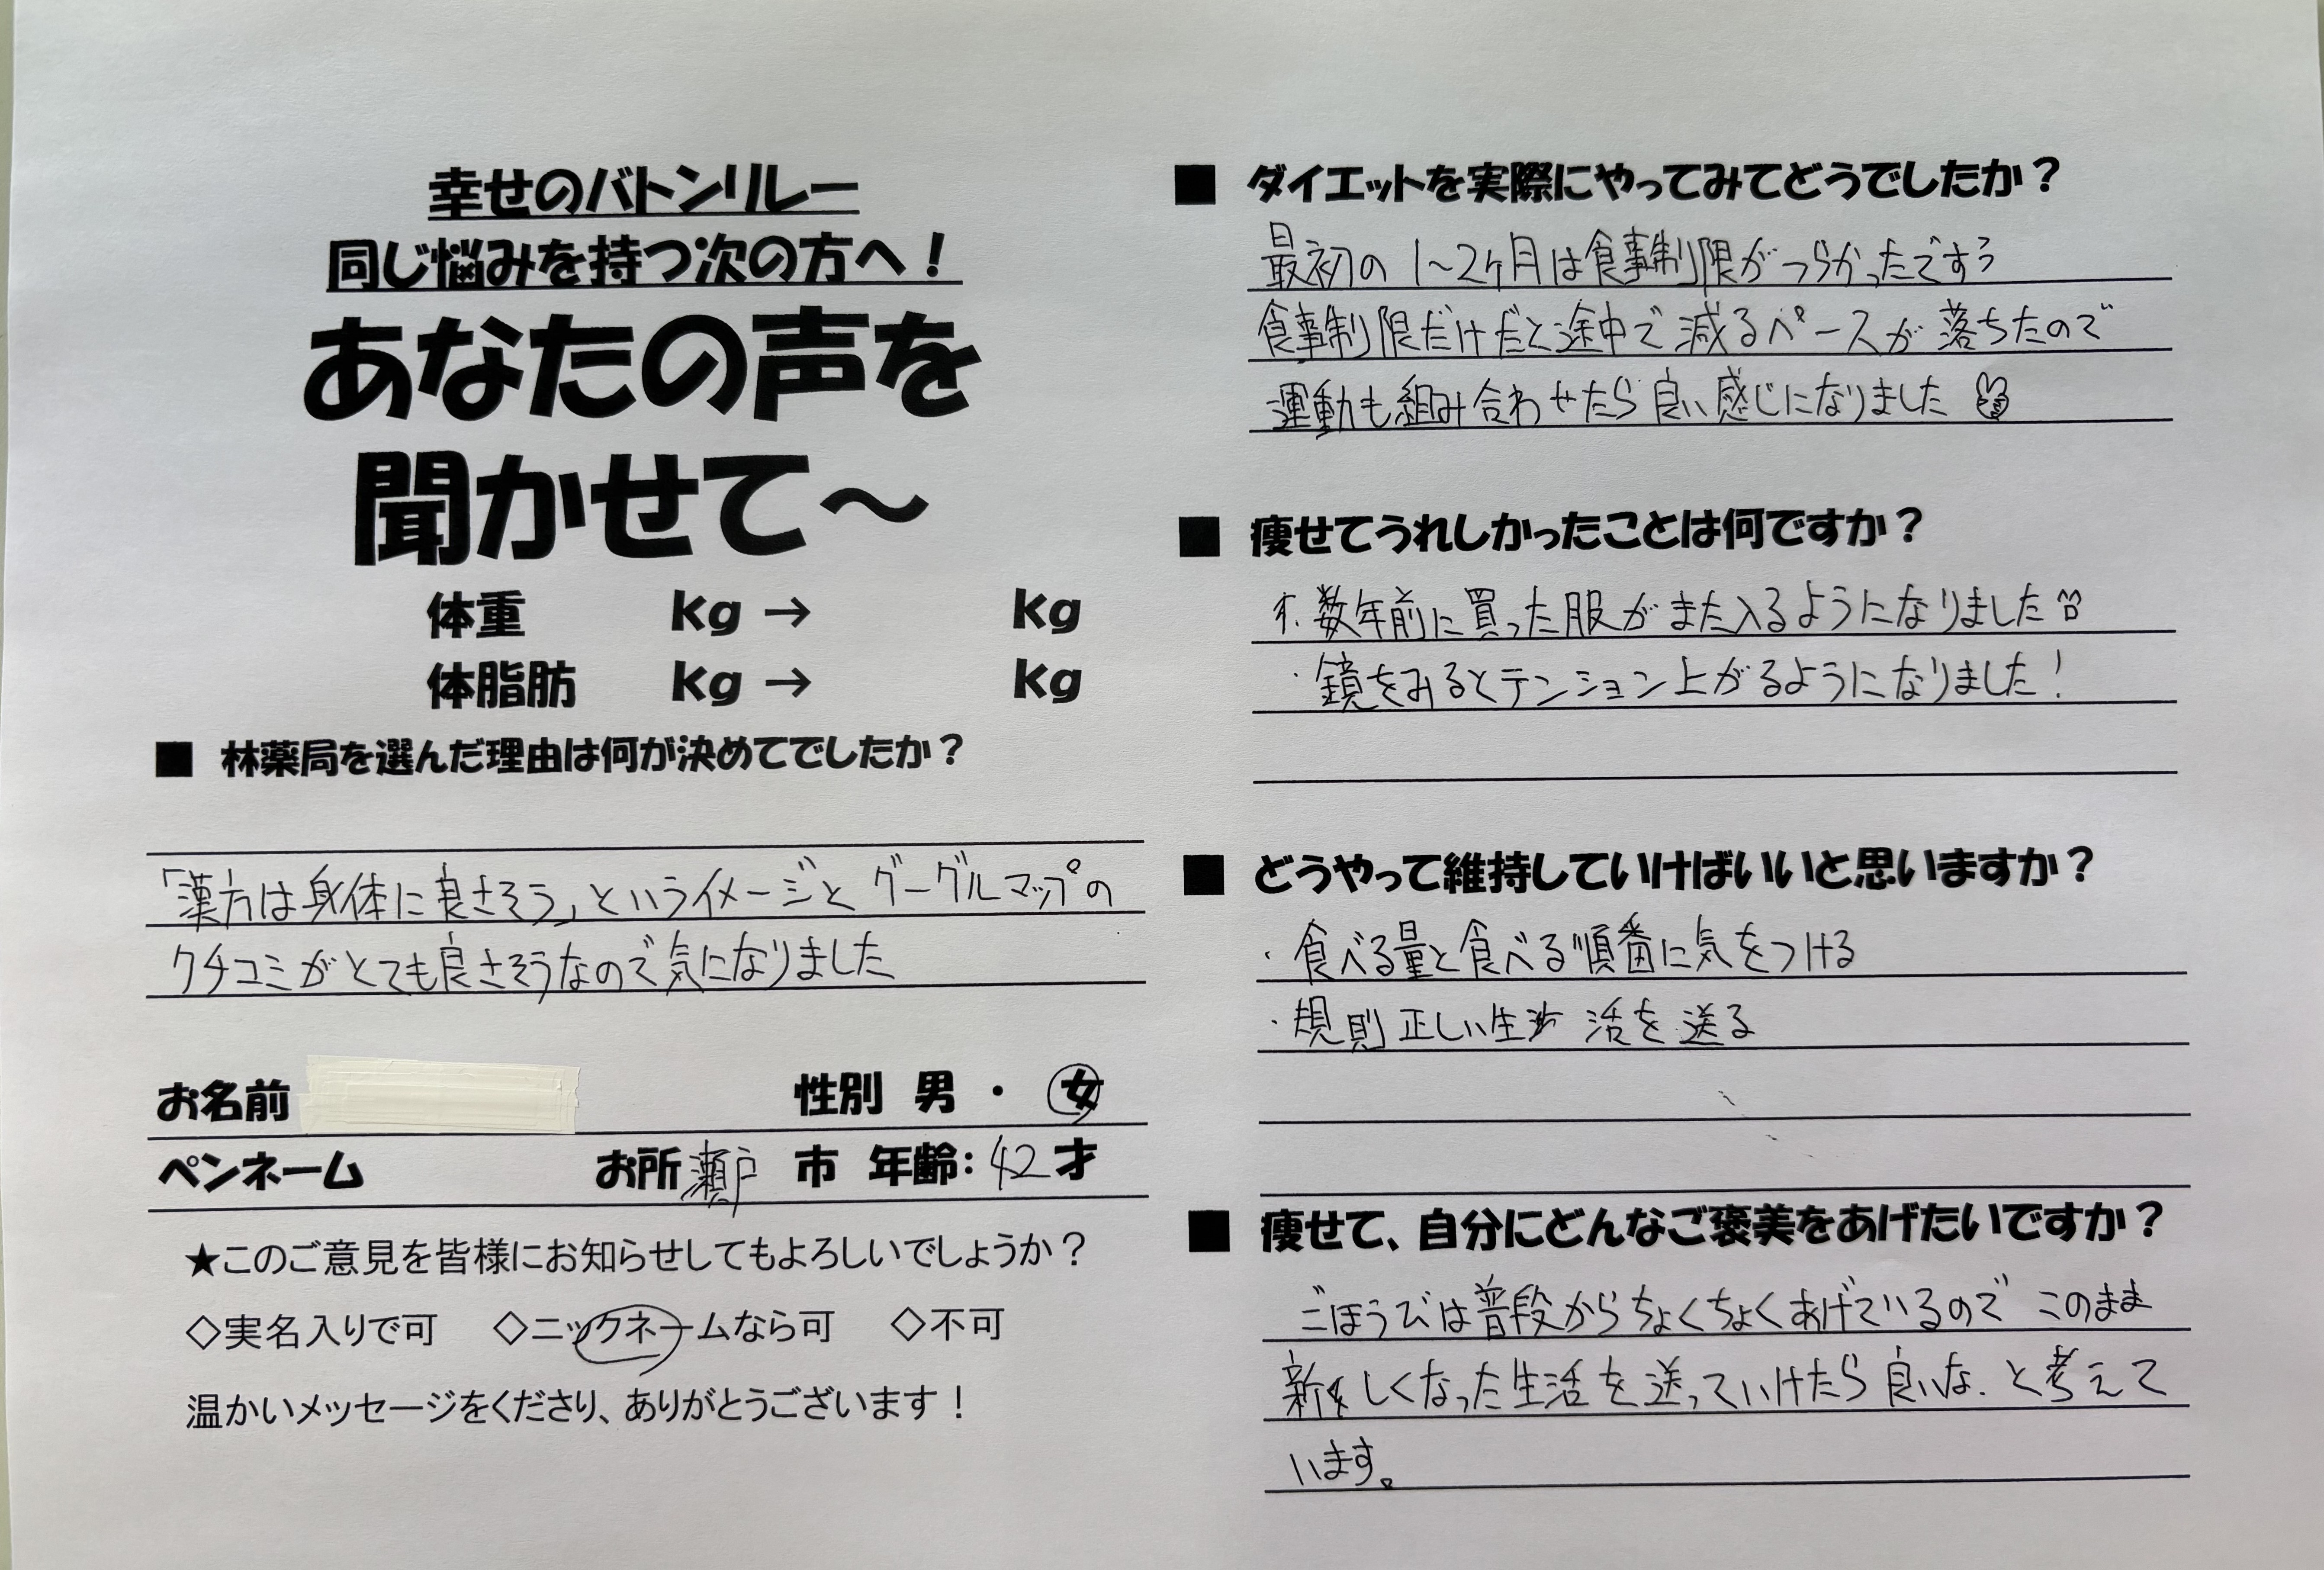 幸せのバトンリレー
同じ悩みを持つ次の方へ！
あなたの声を
聞かせて～
体重 kg → kg
体脂肪 kg → kg
■ 林薬局を選んだ理由は何が決めてでしたか？
「漢方は身体に良さそう」というイメージと グーグルマップの
クチコミがとても良さそうなので気になりました
お名前 性別 男 ・ 女
ペンネーム お所 瀬戸 市 年齢：42才
★このご意見を皆様にお知らせしてもよろしいでしょうか？
◇実名入りで可 ◇ニックネームなら可 ◇不可
温かいメッセージをくださり、ありがとうございます！
■ ダイエットを実際にやってみてどうでしたか？
最初の 1～2ヶ月は食事制限がつらかったです
食事制限だけだと途中で減るペースが落ちたので
運動も組み合わせたら良い感じになりました
■ 痩せてうれしかったことは何ですか？
数年前に買った服がまた入るようになりました
・鏡をみるとテンション上がるようになりました！
■ どうやって維持していけばいいと思いますか？
・食べる量と食べる順番に気をつける
・規則正しい生活を送る
■ 痩せて、自分にどんなご褒美をあげたいですか？
ごほうびは普段からちょくちょくあげているので このまま
新しくなった生活を送っていけたら良いな と考えて
います。